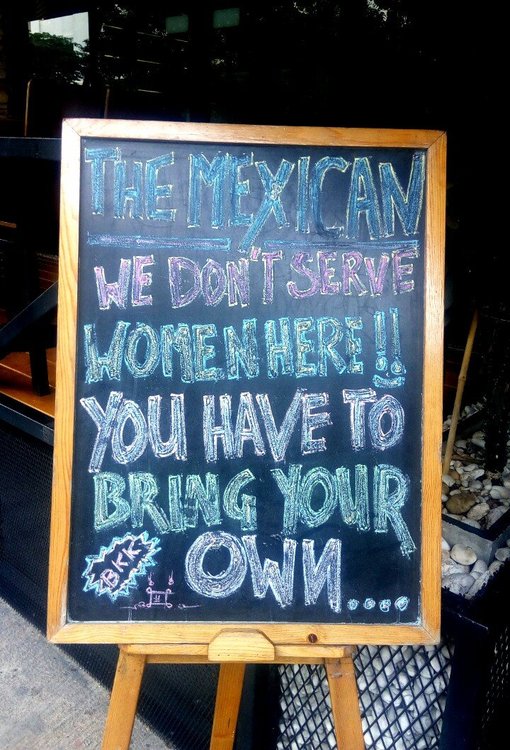 THE MEXICAN
WE DON'T SERVE
WOMEN HERE!!
YOU HAVE TO
BRING YOUR
OWN....
BKK